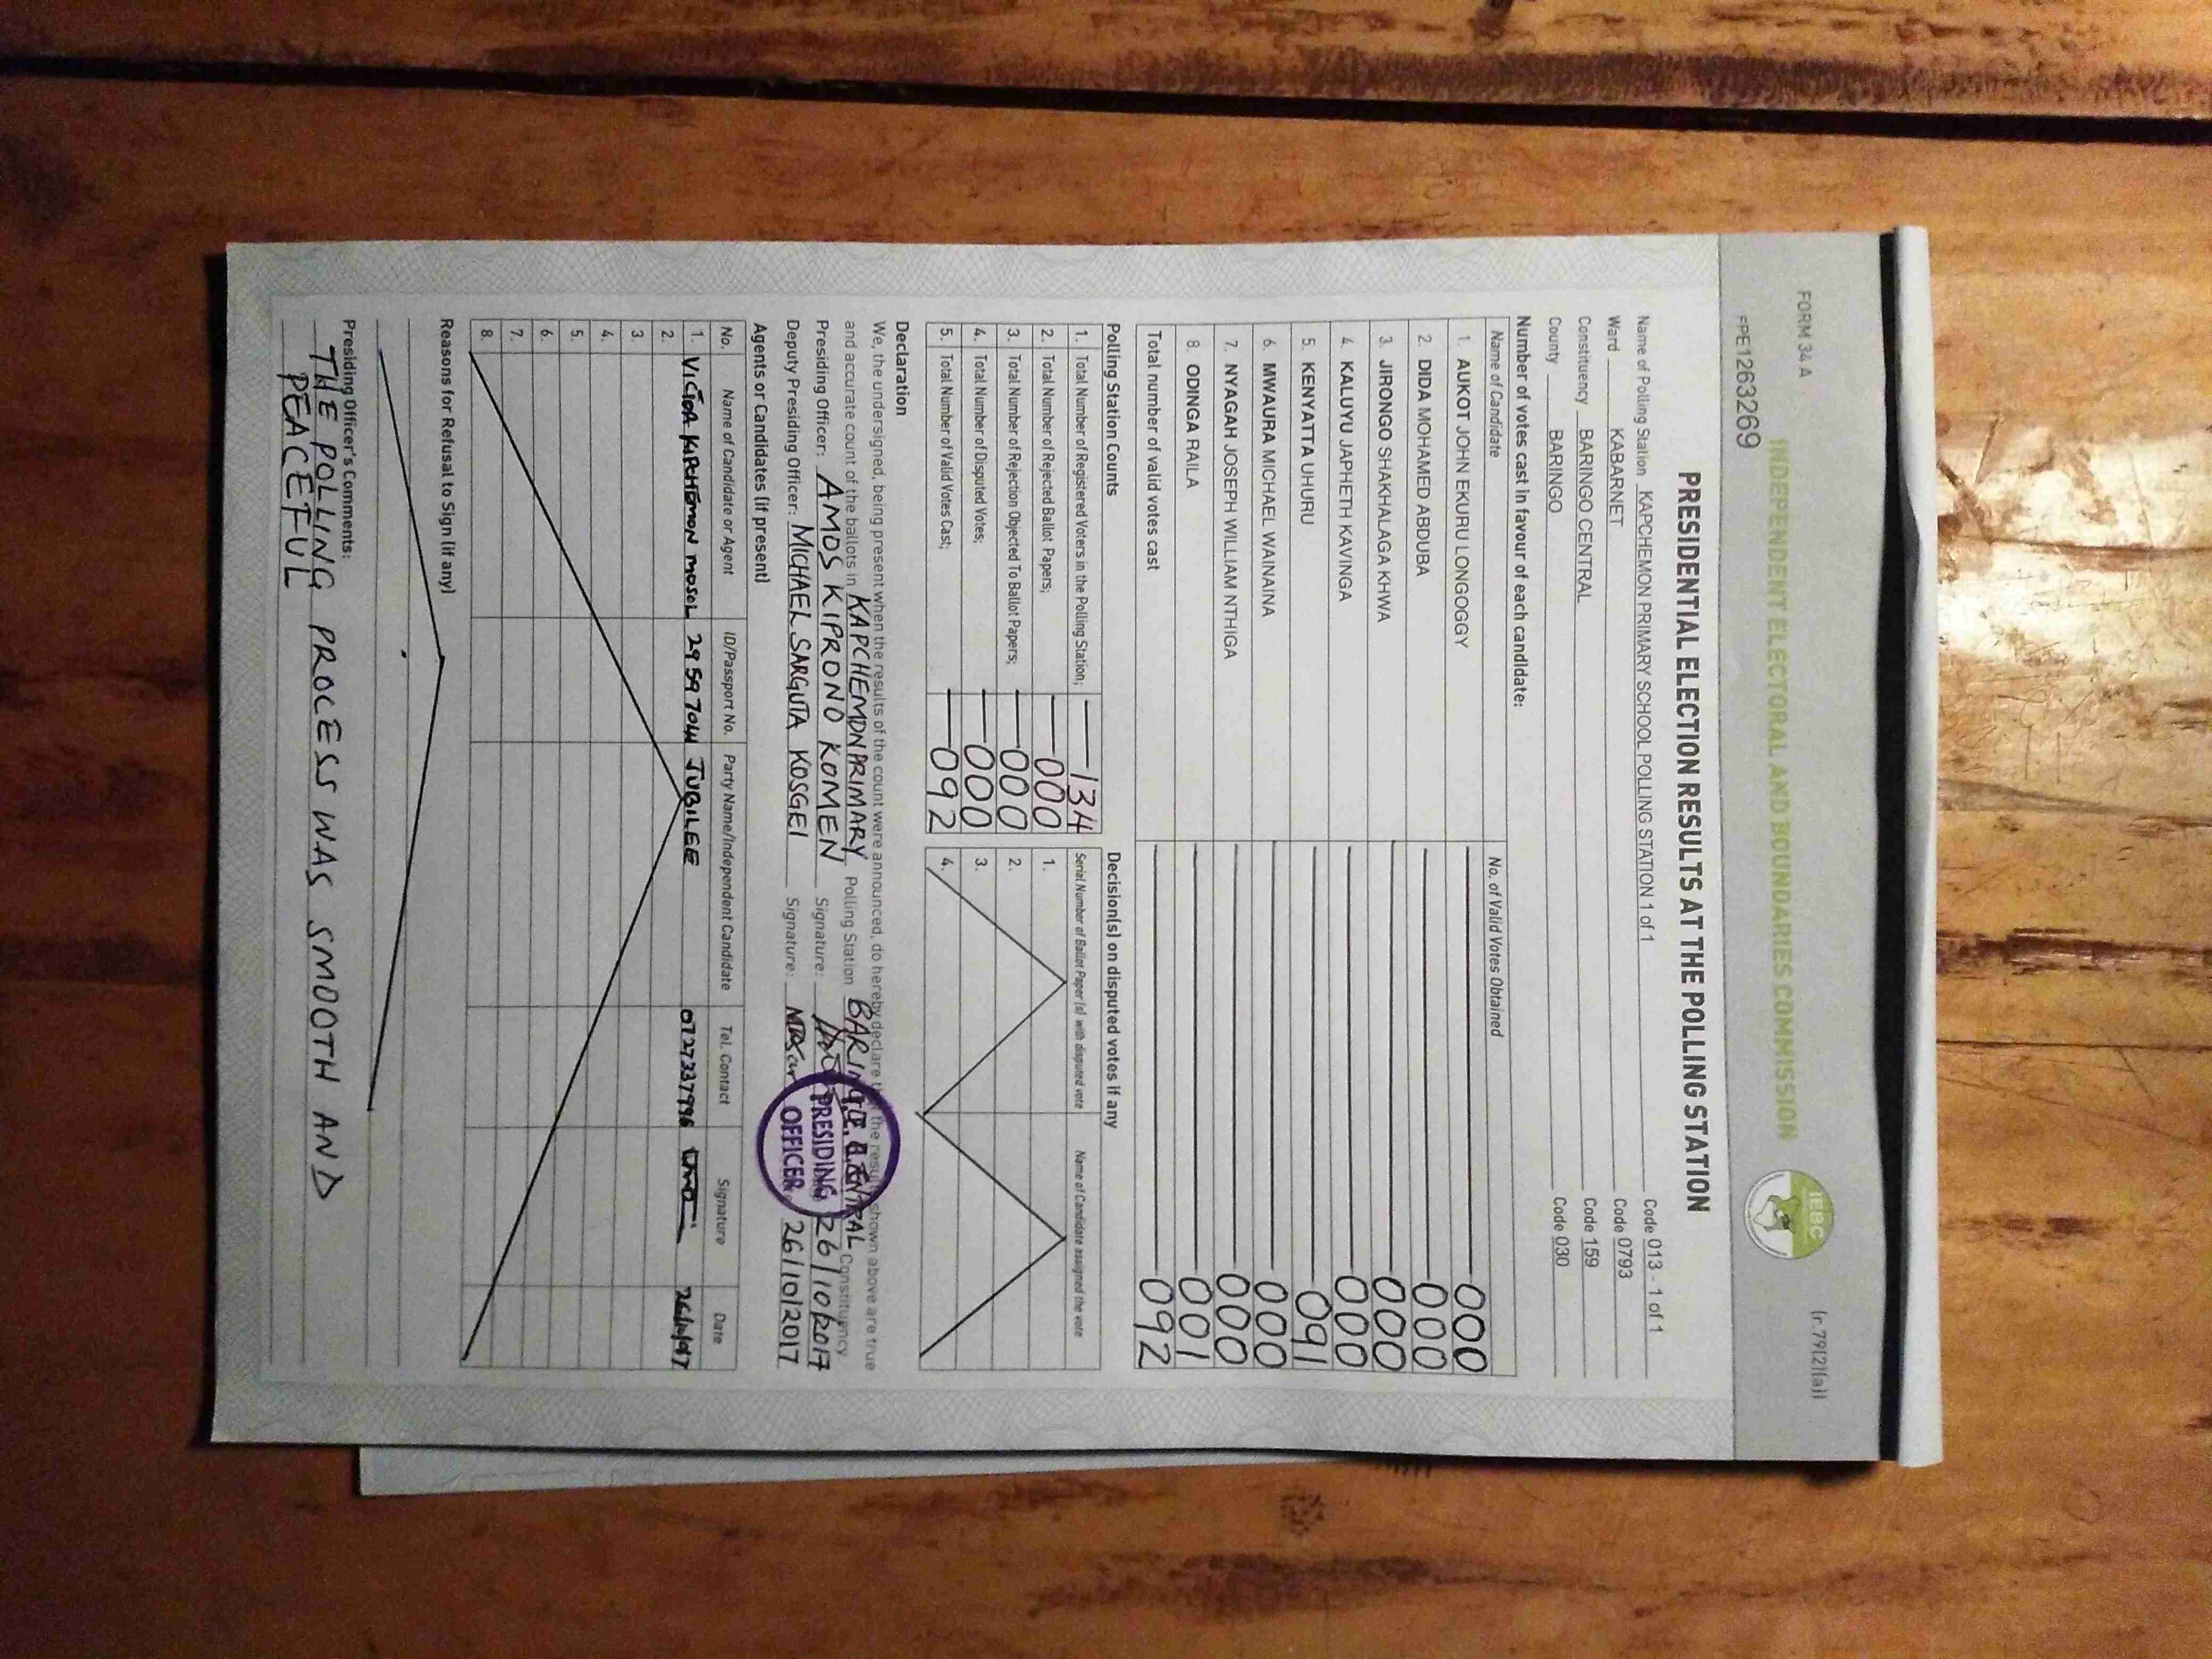 FORM 34 A
(r.79(2)(a))
INDEPENDENT ELECTORAL AND BOUNDARIES COMMISSION
IEBC
FPE1263269
PRESIDENTIAL ELECTION RESULTS AT THE POLLING STATION
Name of Polling Station KAPCHEMON PRIMARY SCHOOL POLLING STATION 1 of 1 Code 013 - 1 of 1
Ward KABARNET Code 0793
Constituency BARINGO CENTRAL Code 159
County BARINGO Code 030
Number of votes cast in favour of each candidate:
Name of Candidate No. of Valid Votes Obtained
1. AUKOT JOHN EKURU LONGOGGY 000
2. DIDA MOHAMED ABDUBA 000
3. JIRONGO SHAKHALAGA KHWA 000
4. KALUYU JAPHETH KAVINGA 000
5. KENYATTA UHURU 091
6. MWAURA MICHAEL WAINAINA 000
7. NYAGAH JOSEPH WILLIAM NTHIGA 000
8. ODINGA RAILA 001
Total number of valid votes cast 092
Polling Station Counts Decision(s) on disputed votes if any
1. Total Number of Registered Voters in the Polling Station; 134 Serial Number of Ballot Paper(s) with disputed vote Name of Candidate assigned the vote
2. Total Number of Rejected Ballot Papers; 000 1.
3. Total Number of Rejection Objected To Ballot Papers; 000 2.
4. Total Number of Disputed Votes; 000 3.
5. Total Number of Valid Votes Cast; 092 4.
Declaration
We, the undersigned, being present when the results of the count were announced, do hereby declare that the results shown above are true
and accurate count of the ballots in KAPCHEMON PRIMARY Polling Station BARINGO CENTRAL Constituency
Presiding Officer: AMOS KIPRONO KOMEN Signature: 26/10/2017
Deputy Presiding Officer: MICHAEL SARGUTA KOSGEI Signature: 26/10/2017
PRESIDING
OFFICER
Agents or Candidates (if present)
No. Name of Candidate or Agent ID/Passport No. Party Name/Independent Candidate Tel. Contact Signature Date
1. KIPCHEMON MOSOL JUBILEE 0727337996
2.
3.
4.
5.
6.
7.
8.
Reasons for Refusal to Sign (if any)
Presiding Officer's Comments:
THE POLLING PROCESS WAS SMOOTH AND
PEACEFUL